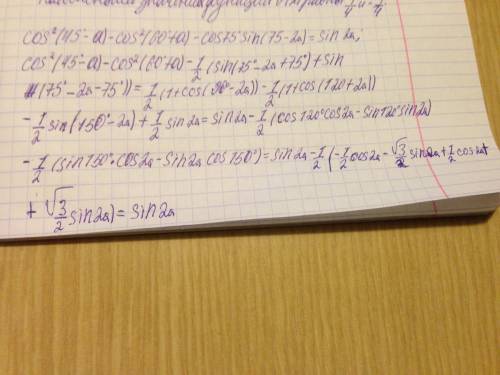 cos²(45°-a)-cos²(60°+a)-cos75°sin(75-2a)=sin2a;
cos²(45°-a)-cos²(60°+a)-1/2(sin(75°-2a+75°)+sin
(75°-2a-75°))=1/2(1+cos(90°-2a))-1/2(1+cos(120+2a))
-1/2sin(150°-2a)+1/2sin2a=sin2a-1/2(cos120°cos2a-sin120°sin2a)
-1/2(sin150°·cos2a-sin2a cos150°)=sin2a-1/2(-1/2cos2a-√3/2sin2a+1/2cos2a+
+√3/2sin2a)=sin2a